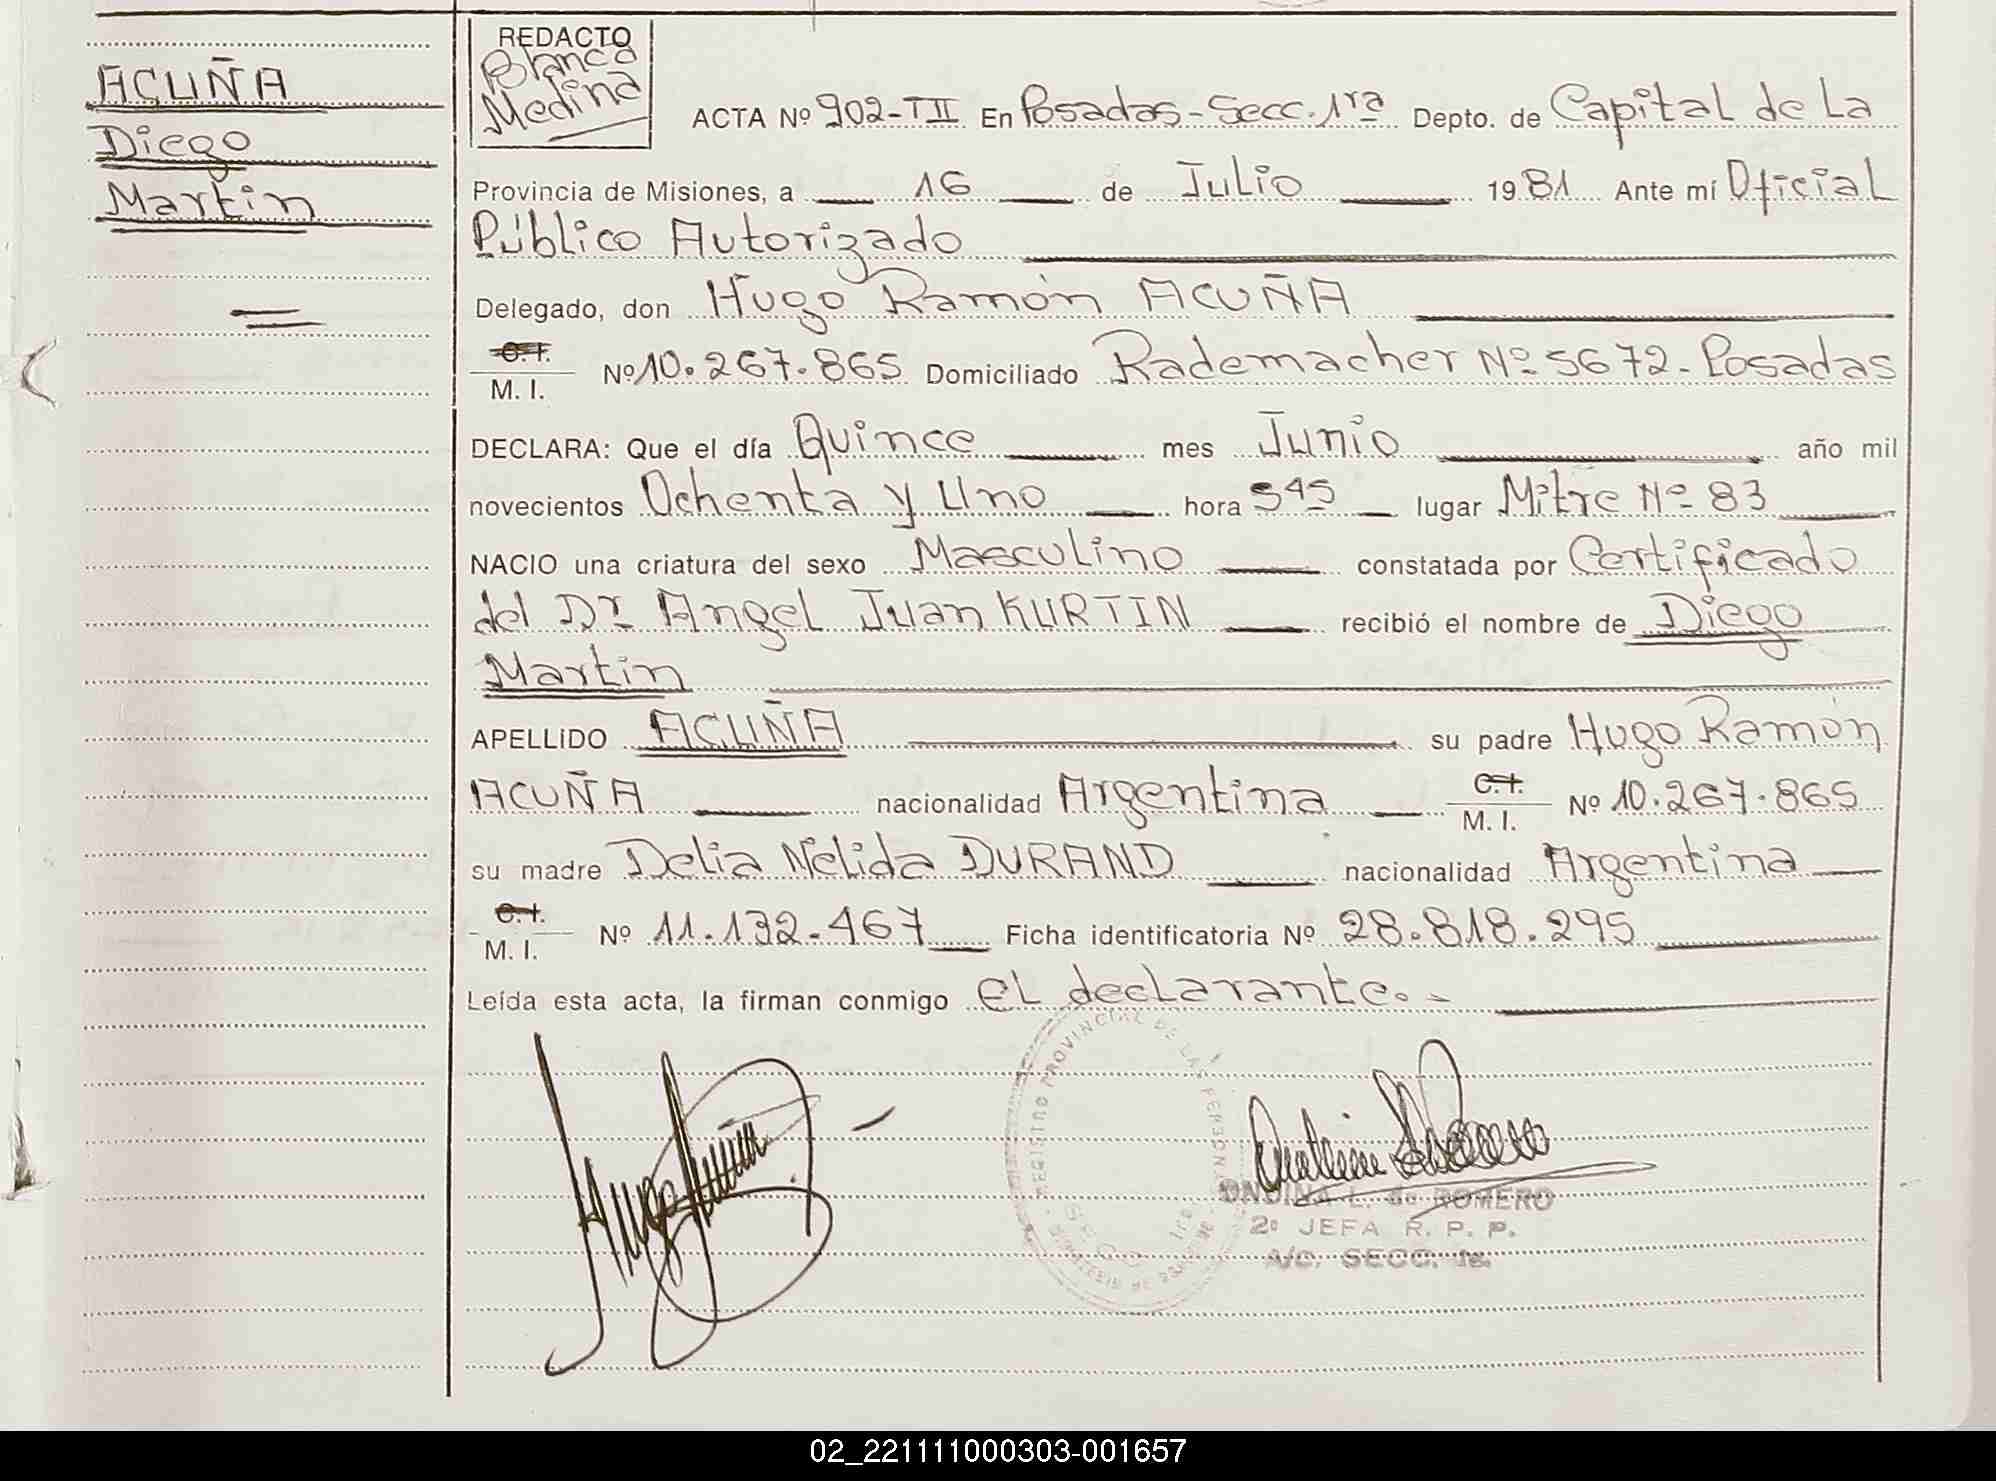 ACUÑA
Diego
Martin
REDACTO
Blanca
Medina
ACTA Nº 902-TII En Posadas-Secc. 1ra Depto. de Capital de La
Provincia de Misiones, a 16 de Julio 1981 Ante mí Oficial
Público Autorizado
Delegado, don Hugo Ramón ACUÑA
C.I.
M. I. Nº 10.267.865 Domiciliado Rademacher Nº 5672-Posadas
DECLARA: Que el día Quince mes Junio año mil
novecientos Ochenta y Uno hora 5 45 lugar Mitre Nº 83
NACIO una criatura del sexo Masculino constatada por Certificado
del Dr Angel Juan KURTIN recibió el nombre de Diego
Martin
APELLIDO ACUÑA su padre Hugo Ramón
ACUÑA nacionalidad Argentina C.I.
M. I. Nº 10.267.865
su madre Delia Nélida DURAND nacionalidad Argentina
C.I.
M. I. Nº 11.132.467 Ficha identificatoria Nº 28.818.295
Leída esta acta, la firman conmigo el declarante.-
REGISTRO PROVINCIAL DE LAS PERSONAS
SECC. 1ra
Hugo Acuña
ONDINA L. de ROMERO
2º JEFA R. P. P.
A/C. SECC. 1a.
02_221111000303-001657